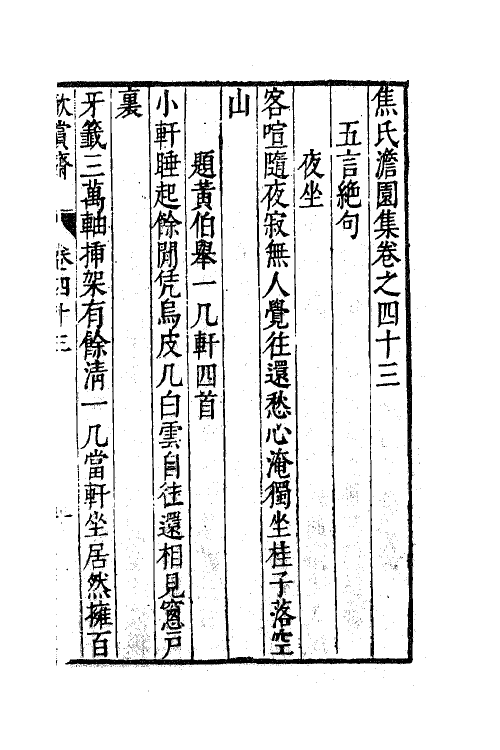 焦氏澹園集卷之四十三
五言絶句
夜坐
客喧隨夜寂無人覺往還愁心淹獨坐桂子落空
山
題黃伯舉一几軒四首
小軒睡起餘閒凭烏皮几白雲自往還相見窻戸
裏
牙籖三萬軸揷架有餘清一几當軒坐居然擁百
欣賞齋 卷四十三 一